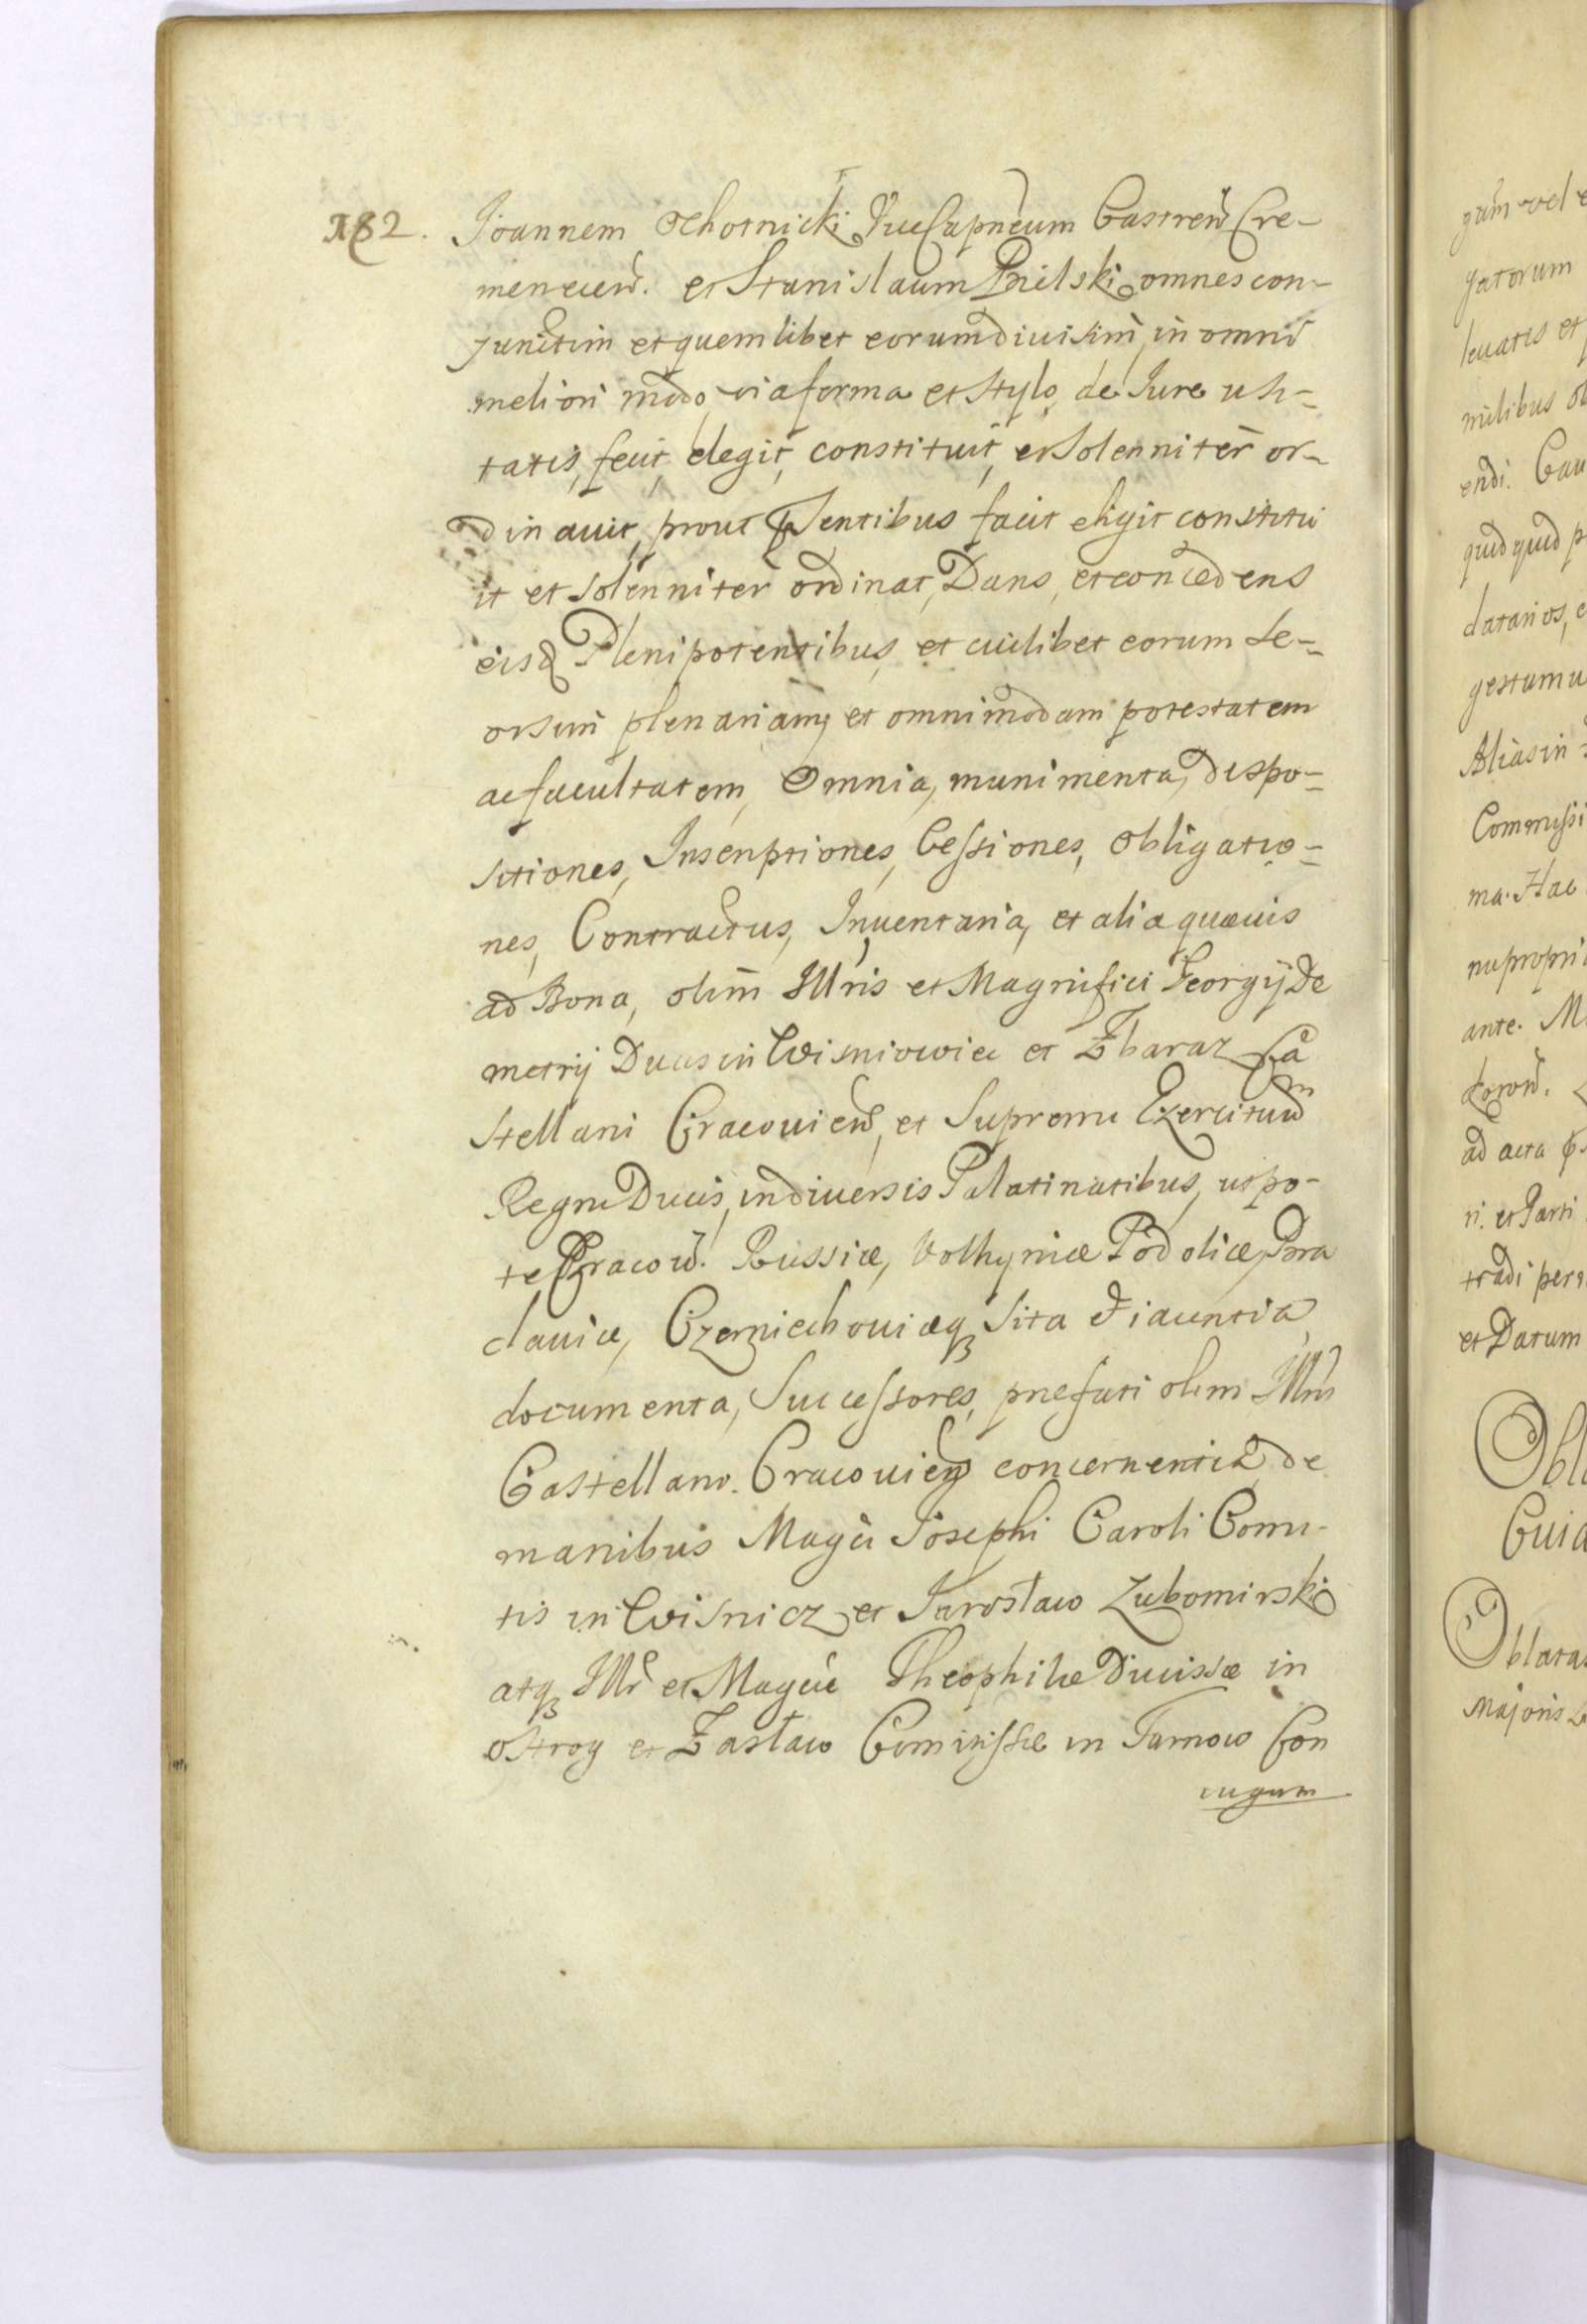 182. Joannem Ochotnicki ViceCapneum Castren̄ Cre-
menecen̄. et Stanislaum Bielski omnes con-
junctim et quemlibet eorum divisim, in omni
meliori modo, via forma et stylo, de Jure usi-
tatis, fecit, elegit, constituit, et solenniter or-
dinavit, prout p̄sentibus facit eligit constitu
it et solenniter ordinat, Dans, et concedens
eisd Plenipotentibus, et cuilibet eorum se-
orsim plenariam, et omnimodam potestatem
ac facultatem, Omnia, munimenta, dispo-
sitiones, Inscriptiones, Cessiones, Obligatio-
nes, Contractus, Inventaria, et alia quævis
ad Bona, olim Illris et Magnifici Georgij De
metrij Ducis in Wisniowiec et Zbaraz Ca
stellani Cracovien̄, et Supremi Exercituum
Regni Ducis, in diversis Palatinatibus, utpo-
te Cracovi. Russiæ, Volhyniæ Podoliæ, Bra
claviæ, Czerniechoviæq sita & iacentia,
documenta, Successores, præfati olim Illris
Castellani. Cracovien̄ concernentia, de
manibus Magci Josephi Caroli Comi-
tis in Wisnicz et Jarosław Lubomirski
atq Illr̄ et Magcæ Theophilæ Ducissæ in
Ostrog et Zasław Comitissæ in Tarnow Con
iugum
gum vel
gatorum
levatis et
milibus
endi.
quidquid
datarios,
gestum
Alias in
Commissi
ma. Hac
nu propri
ante.
ad acta
ri. et Parti
tradi per
et Datum
Obl
Oblata
Majoris